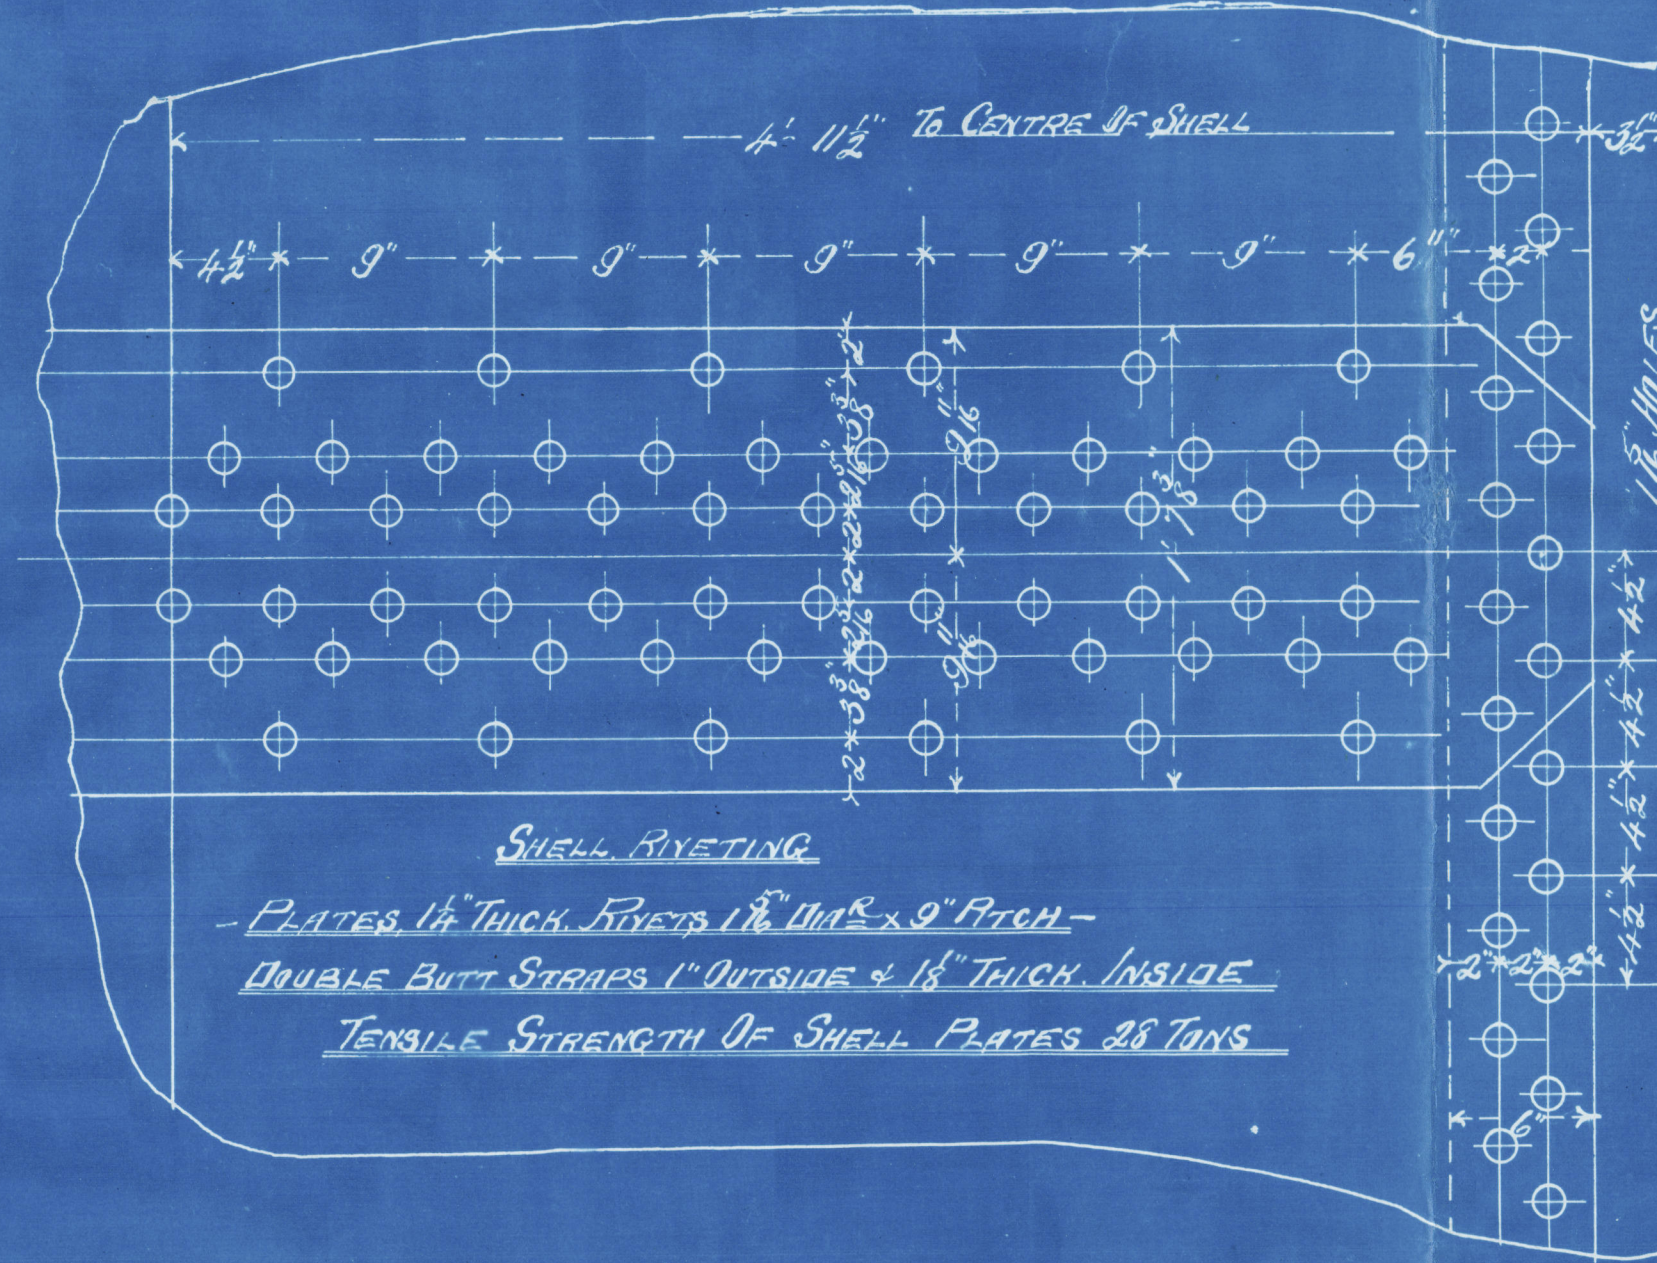 4' 11½" To CENTRE OF SHELL
3½"
4½" 9" 9" 9" 9" 9" 6" 2"
2" 3⅜" 2 5/16" 2" 2" 2 5/16" 3⅜" 2"
9 11/16"
9 11/16"
1' 7⅜"
1 5/16" HOLES
4½" 4½" 4½" 4½"
2" 2" 2"
6"
SHELL RIVETING
- PLATES, 1¼" THICK. RIVETS 1 5/16" DIAR x 9" PITCH -
DOUBLE BUTT STRAPS 1" OUTSIDE & 1⅛" THICK. INSIDE
TENSILE STRENGTH OF SHELL PLATES 28 TONS